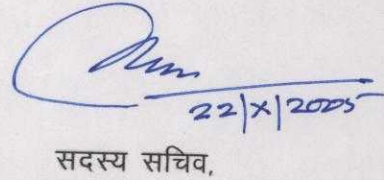 22/X/2005
सदस्य सचिव,